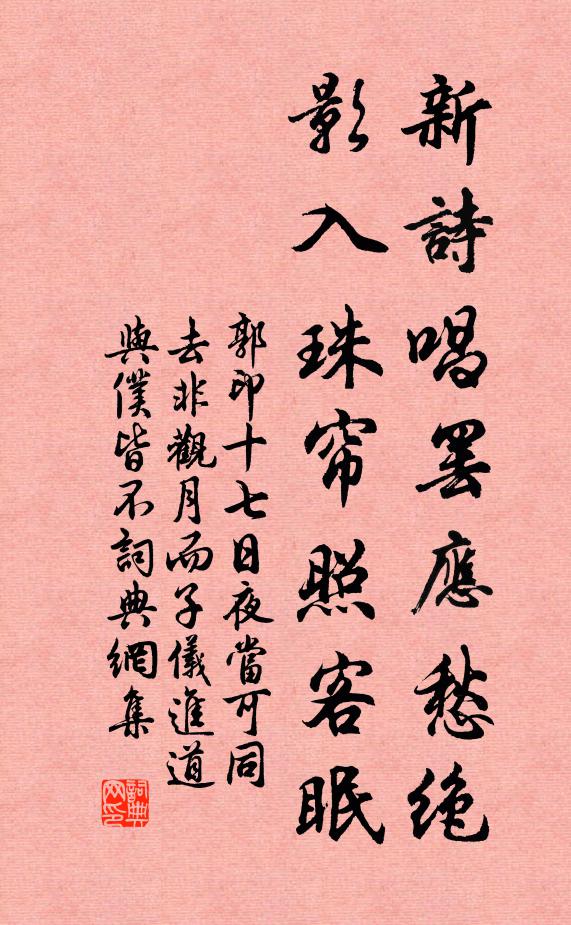 新詩唱罢應愁绝
影入珠帘照客眠
郭印十七日夜當可同
去非觀月而子儀進道
與僕皆不詞典網集
詞典网印